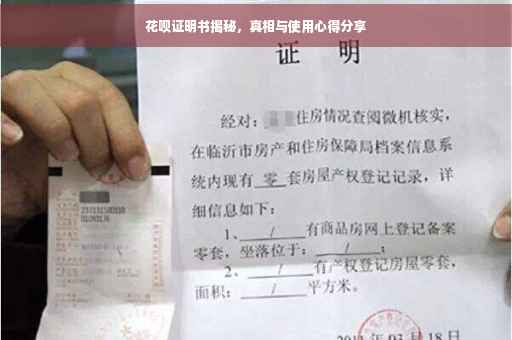 花呗证明书揭秘，真相与使用心得分享
证 明
经对： 住房情况查阅微机核实，
在临沂市房产和住房保障局档案信息系
统内现有 零 套房屋产权登记记录，详
细信息如下：
1、 / 有商品房网上登记备案
零套，坐落位于： / ；
2、 / 有产权登记房屋零套，
面积： / 平方米。
年 03 月 18 日